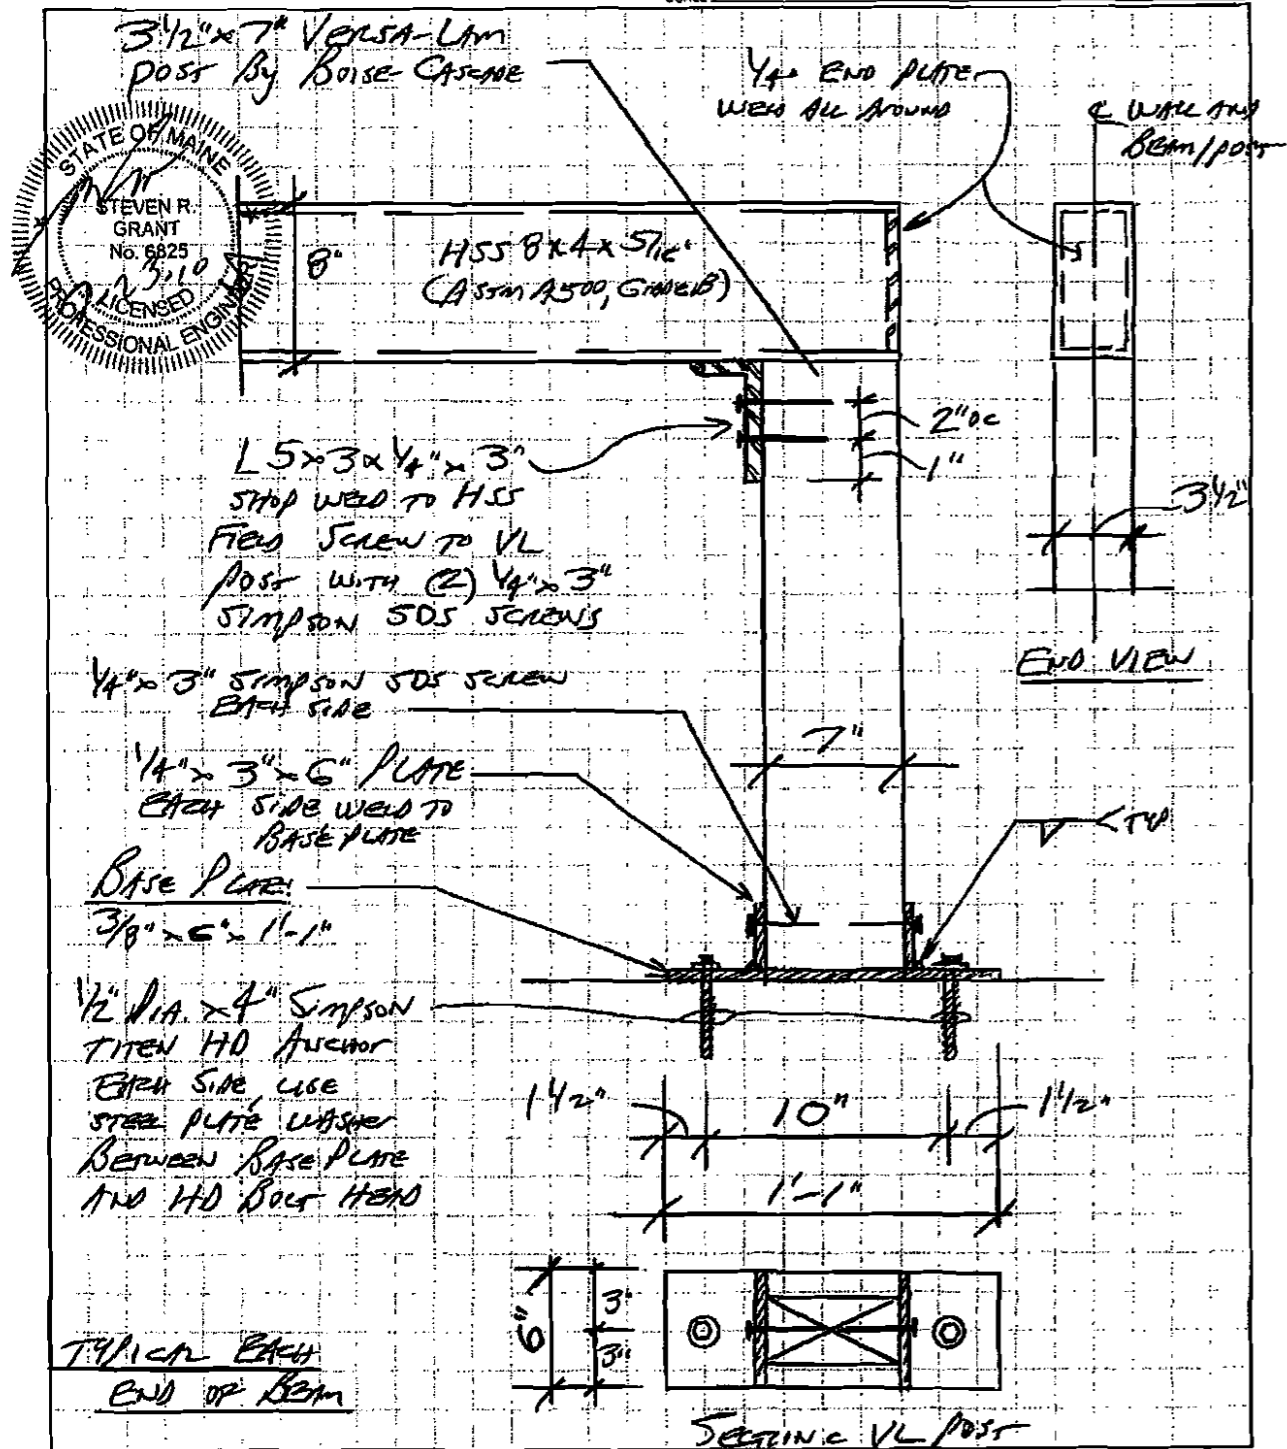 3 1/2" x 7" VERSA-LAM
POST BY BOISE CASCADE
1/4" END PLATE
WELD ALL AROUND
℄ WALL AND
BEAM/POST
STATE OF MAINE
STEVEN R.
GRANT
No. 6825
LICENSED
PROFESSIONAL ENGINEER
8"
HSS 8x4x5/16"
(ASTM A500, GRADE B)
2" OC
1"
L 5x3x1/4" x 3"
SHOP WELD TO HSS
FIELD SCREW TO VL
POST WITH (2) 1/4" x 3"
SIMPSON SDS SCREWS
3 1/2"
END VIEW
1/4" x 3" SIMPSON SDS SCREW
EACH SIDE
7"
1/4" x 3" x 6" PLATE
EACH SIDE WELD TO
BASE PLATE
TYP
BASE PLATE:
3/8" x 6" x 1'-1"
1/2" DIA. x 4" SIMPSON
TITEN HD ANCHOR
EACH SIDE, USE
STEEL PLATE WASHER
BETWEEN BASE PLATE
AND HD BOLT HEAD
1 1/2"
10"
1 1/2"
1'-1"
6"
3"
3"
TYPICAL EACH
END OF BEAM
SECTION @ VL POST